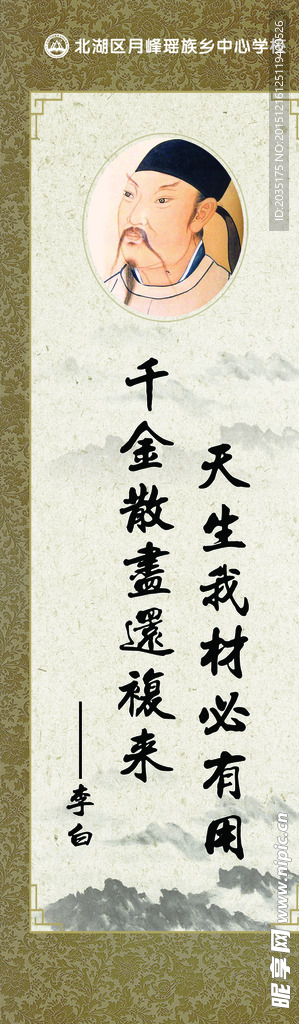 北湖区月峰瑶族乡中心学校
天生我材必有用
千金散盡還複来
——李白
ID:2035175 NO:20151216125119400526
昵享网 www.nipic.cn